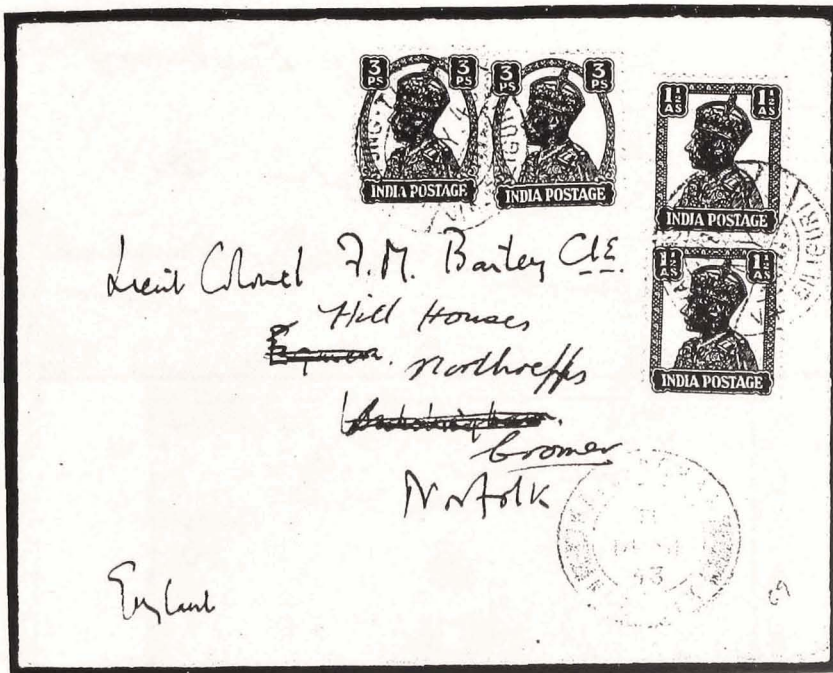 3 PS 3 PS
INDIA POSTAGE
3 PS 3 PS
INDIA POSTAGE
1½ AS 1½ AS
INDIA POSTAGE
1½ AS 1½ AS
INDIA POSTAGE
Lieut Colonel F. M. Bailey CIE.
Hill Houses
Northrepps
Cromer
Norfolk
England
43